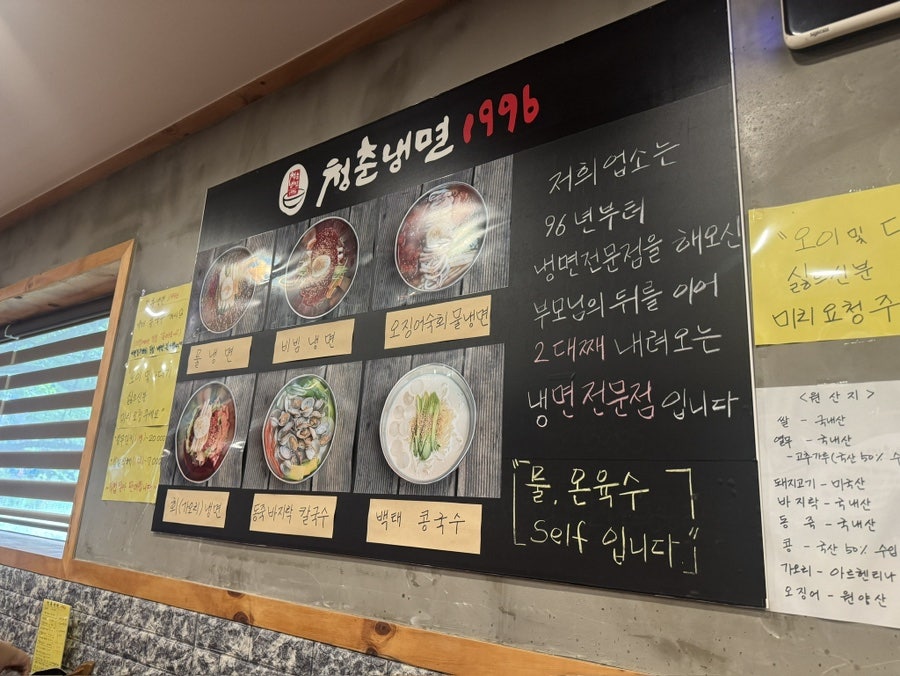 청춘냉면 1996
물냉면
비빔냉면
오징어숙회물냉면
회(가오리)냉면
동죽바지락 칼국수
백태 콩국수
저희 업소는
96년부터
냉면전문점을 해오신
부모님의 뒤를 이어
2대째 내려오는
냉면전문점입니다
"물, 온육수
Self 입니다."
"오이 및
싫으신분
미리 요청주
<원산지>
쌀 - 국내산
열무 - 국내산
- 고추가루(국산 50% 수
돼지고기 - 미국산
바지락 - 국내산
동죽 - 국내산
콩 - 국산 50% 수입
가오리 - 아르헨티나
오징어 - 원양산